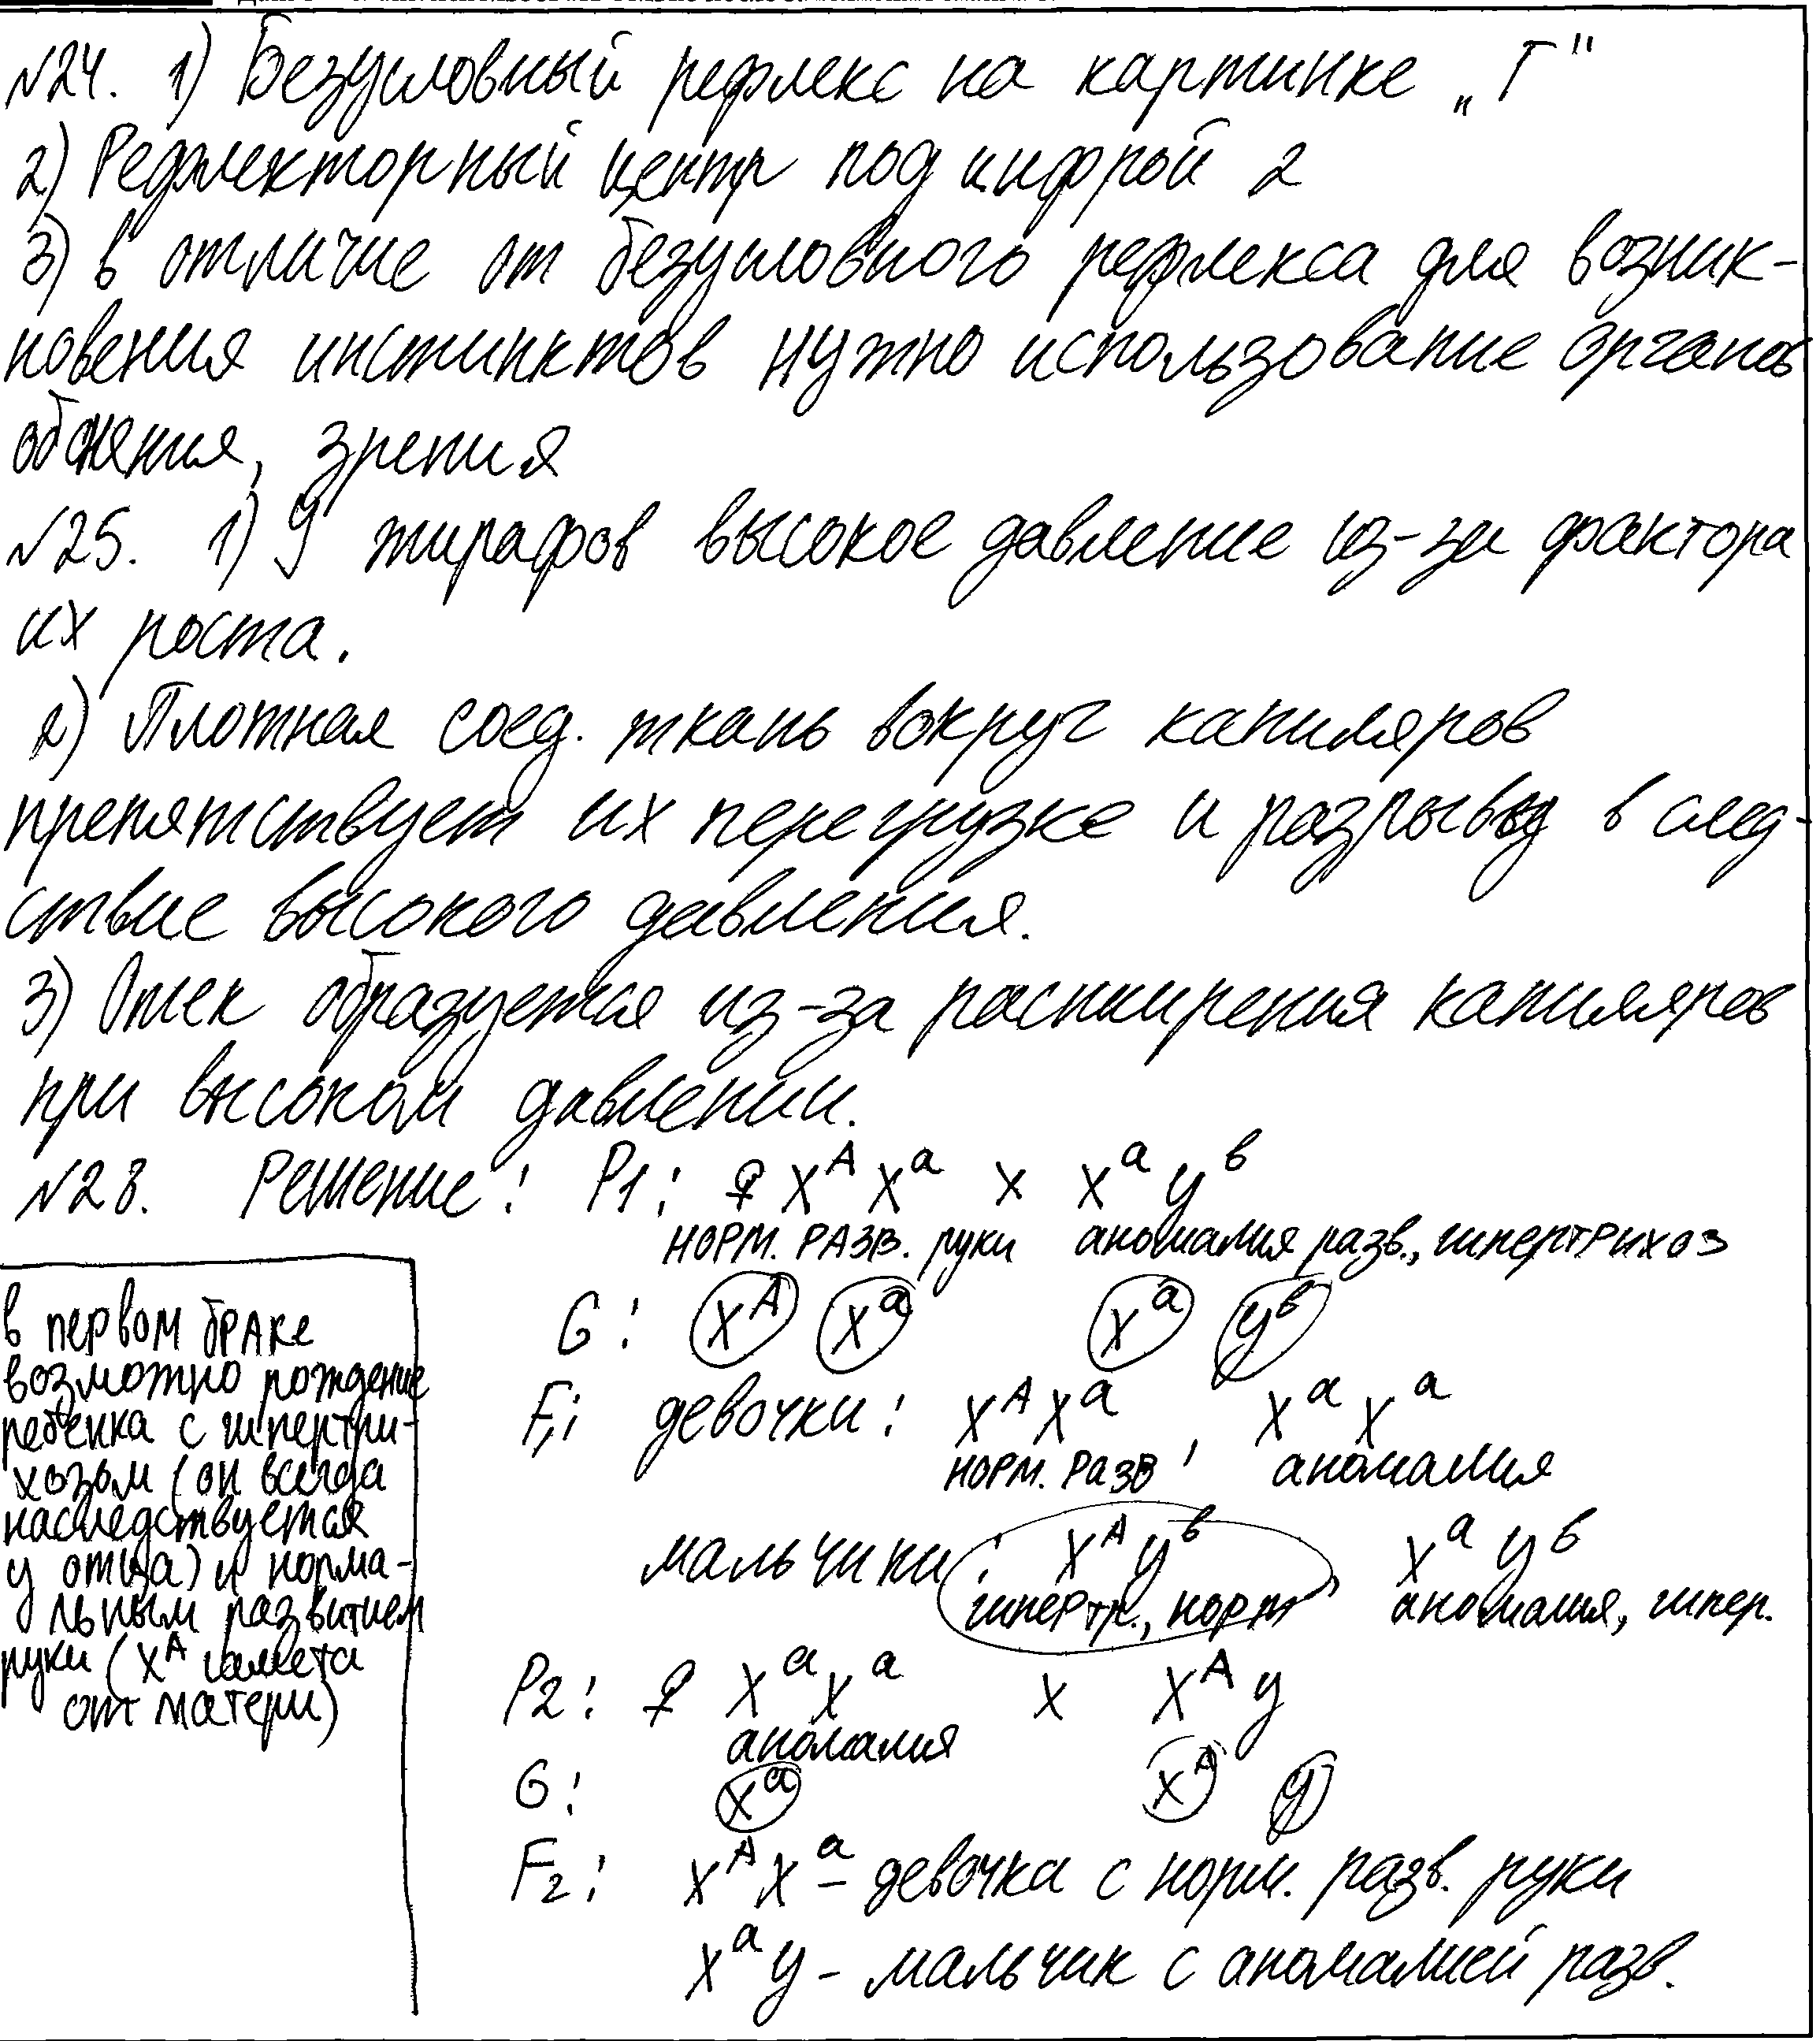 №24. 1) Безусловный рефлекс на картинке „Г"
2) Рефлекторный центр под цифрой 2
3) в отличие от безусловного рефлекса для возник-
новения инстинктов нужно использование органов
обоняния, зрения
№25. 1) У жирафов высокое давление из-за фактора
их роста.
2) Плотная соед. ткань вокруг капиляров
препятствует их перегрузке и разрыву в след-
ствие высокого давления.
3) Отек образуется из-за расширения капиляров
при высоком давлении.
№28. Решение: P1: ♀ X^A X^a x X^a y^b
норм. разв. руки аномалия разв., гипертрихоз
G: X^A X^a X^a y^b
F1: девочки: X^A X^a, X^a X^a
норм. разв, аномалия
мальчики: X^A y^b, X^a y^b
гипертр., норм аномалия, гипер.
P2: ♀ X^a X^a x X^A y
аномалия
G: X^a X^A y
F2: X^A X^a - девочка с норм. разв. руки
X^a y - мальчик с аномалией разв.
в первом браке
возможно рождение
ребенка с гипертри-
хозом (он всегда
наследствуется
у отца) и норма-
льным развитием
руки (X^A гамета
от матери)